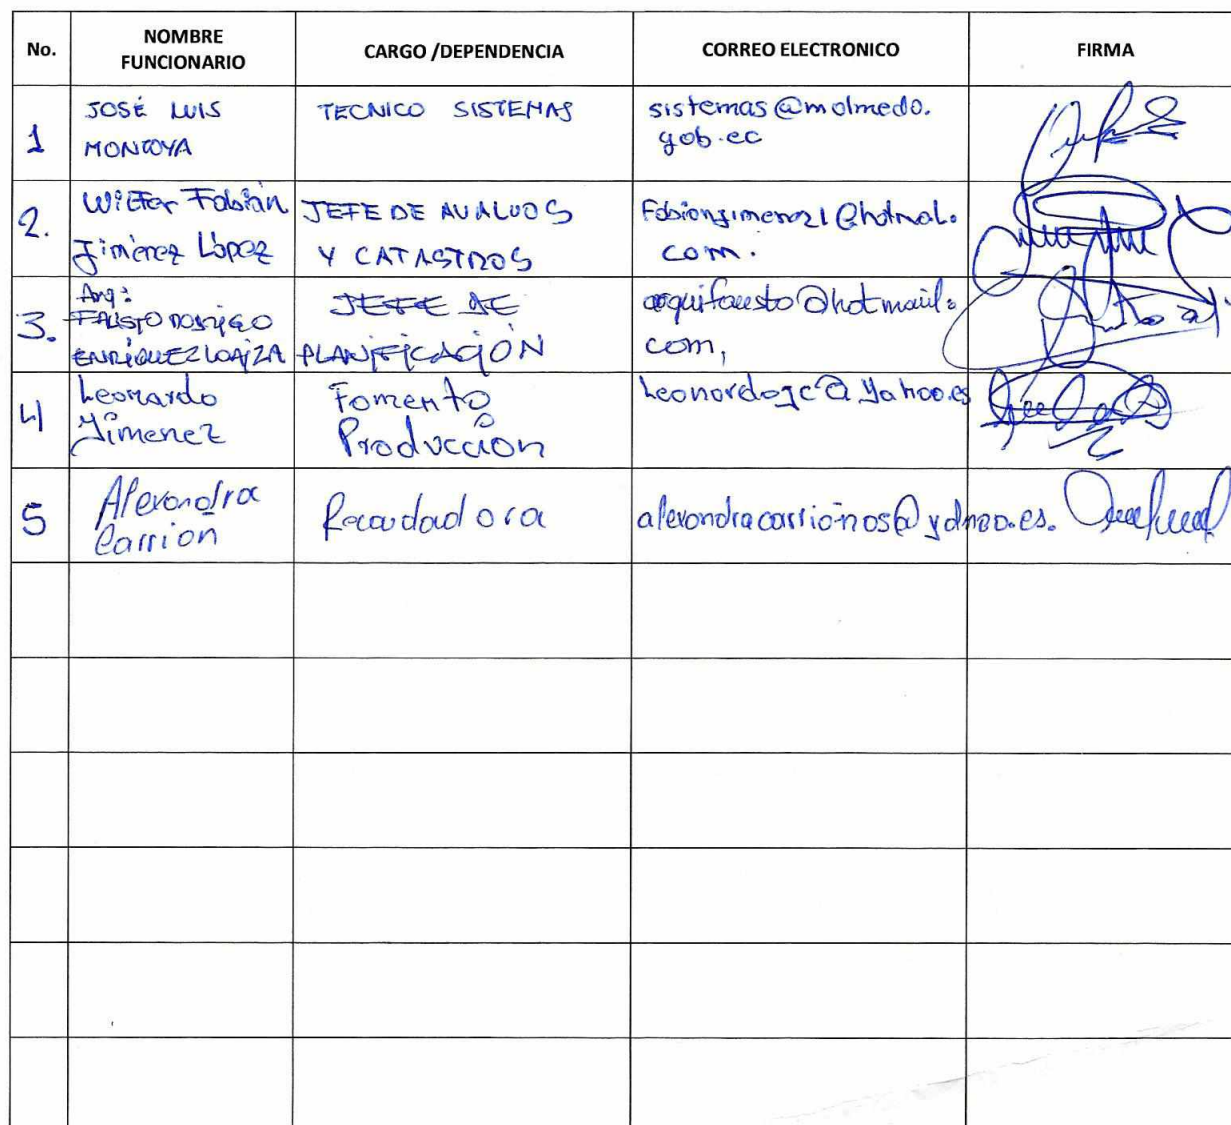 No.
NOMBRE
FUNCIONARIO
CARGO /DEPENDENCIA
CORREO ELECTRONICO
FIRMA
1
JOSÉ LUIS
MONTOYA
TECNICO SISTEMAS
sistemas@molmedo.
gob.ec
2.
Wilfer Fabián
Jiménez López
JEFE DE AVALUOS
Y CATASTROS
Fabianjimenez1@hotmal.
com.
3.
Arq:
FAUSTO RODRIGO
ENRÍQUEZ LOAIZA
JEFE DE
PLANIFICACIÓN
arquifausto@hotmail.
com,
4
Leonardo
Jimenez
Fomento
Producción
Leonardojc@yahoo.es
5
Alexandra
Carrion
Recaudadora
alexandracarrionos@yahoo.es.